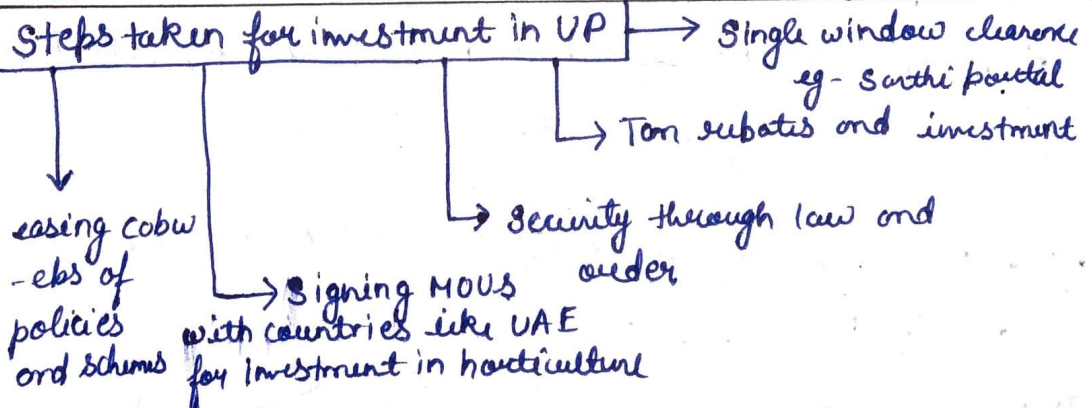 Steps taken for investment in UP
Single window clearence
eg - Sarthi portal
Tax rebates and investment
Security through law and
order
Signing MOUS
with countries like UAE
for investment in horticulture
easing cobw
-ebs of
policies
and schemes